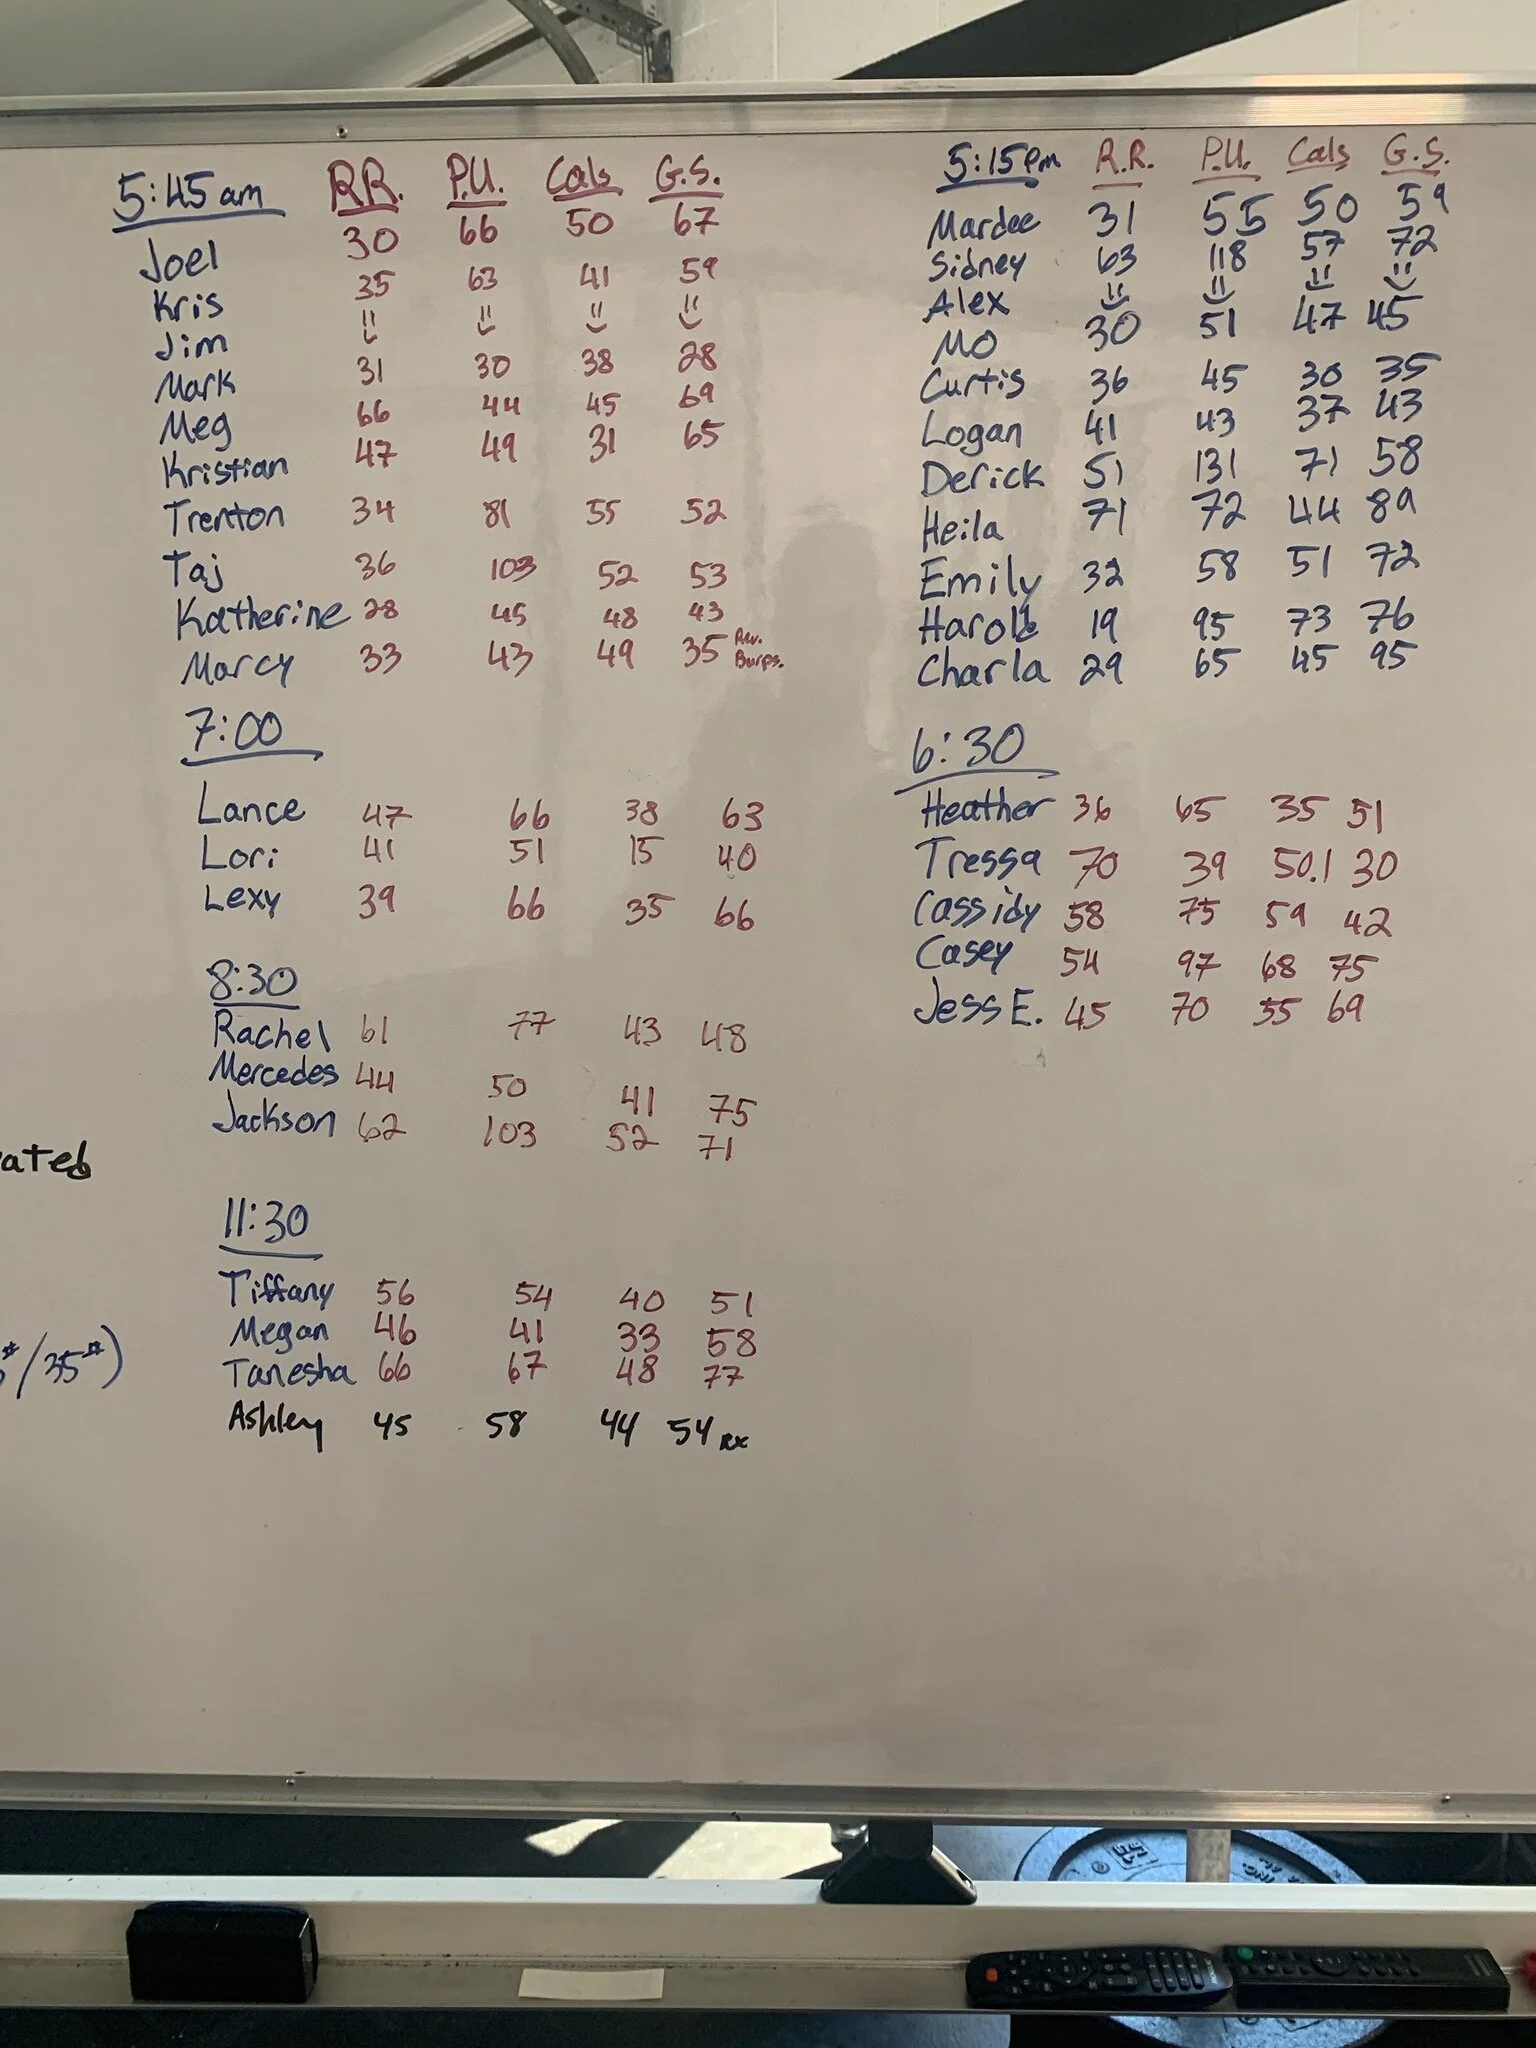 5:45 am R.R. P.U. Cals G.S.
Joel 30 66 50 67
Kris 35 63 41 59
Jim
Mark 31 30 38 28
Meg 66 44 45 69
Kristian 47 49 31 65
Trenton 34 81 55 52
Taj 36 103 52 53
Katherine 28 45 48 43
Marcy 33 43 49 35 Rev. Burps.
7:00
Lance 47 66 38 63
Lori 41 51 15 40
Lexy 39 66 35 66
8:30
Rachel 61 77 43 48
Mercedes 44 50 41 75
Jackson 62 103 52 71
11:30
Tiffany 56 54 40 51
Megan 46 41 33 58
Tanesha 66 67 48 77
Ashley 45 58 44 54 RX
ated
/35#)
5:15pm R.R. P.U. Cals G.S.
Mardee 31 55 50 59
Sidney 63 118 57 72
Alex
Mo 30 51 47 45
Curtis 36 45 30 35
Logan 41 43 37 43
Derick 51 131 71 58
Heila 71 72 44 89
Emily 32 58 51 72
Harold 19 95 73 76
Charla 29 65 45 95
6:30
Heather 36 65 35 51
Tressa 70 39 50.1 30
Cassidy 58 75 59 42
Casey 54 97 68 75
Jess E. 45 70 55 69